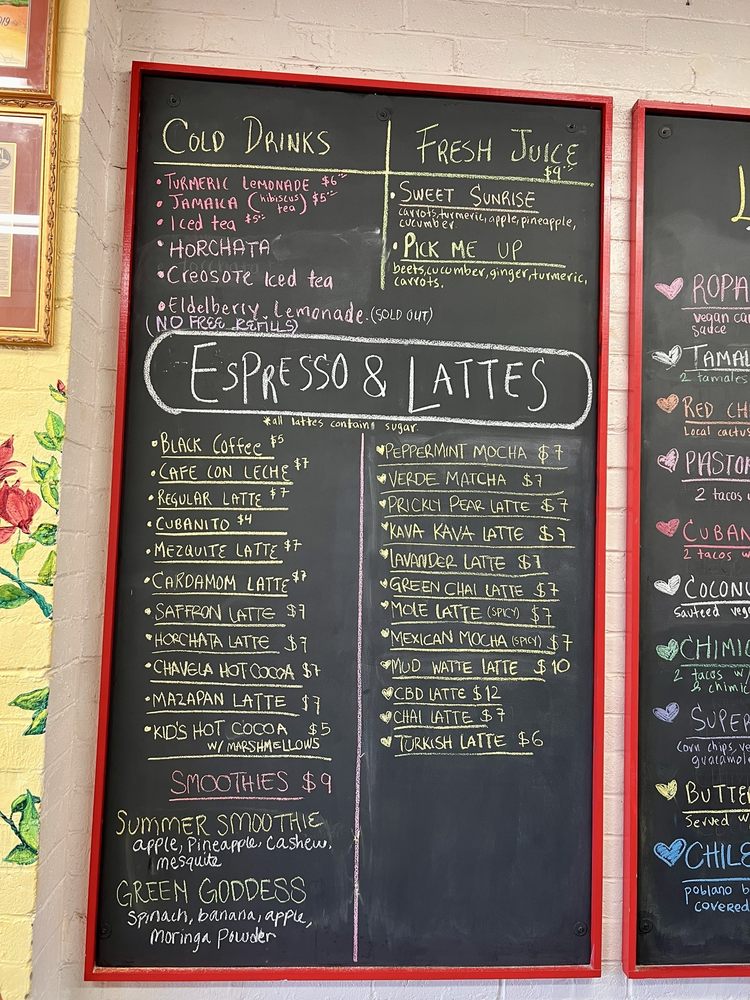 2019
COLD DRINKS
• TURMERIC LEMONADE $6
• JAMAICA (hibiscus tea) $5
• Iced tea $5
• HORCHATA
• Creosote Iced tea
• Eldelberry Lemonade. (SOLD OUT)
(NO FREE REFILLS)
FRESH JUICE
$9
• SWEET SUNRISE
carrots, turmeric, apple, pineapple,
cucumber
• PICK ME UP
beets, cucumber, ginger, turmeric,
carrots.
ESPRESSO & LATTES
*all lattes contain sugar.
• BLACK COFFEE $5
• CAFE CON LECHE $7
• REGULAR LATTE $7
• CUBANITO $4
• MEZQUITE LATTE $7
• CARDAMOM LATTE $7
• SAFFRON LATTE $7
• HORCHATA LATTE $7
• CHAVELA HOT COCOA $7
• MAZAPAN LATTE $7
• KID'S HOT COCOA $5
W/ MARSHMELLOWS
PEPPERMINT MOCHA $7
VERDE MATCHA $7
PRICKLY PEAR LATTE $7
KAVA KAVA LATTE $7
LAVANDER LATTE $7
GREEN CHAI LATTE $7
MOLE LATTE (SPICY) $7
MEXICAN MOCHA (SPICY) $7
MUD WATTE LATTE $10
CBD LATTE $12
CHAI LATTE $7
TURKISH LATTE $6
SMOOTHIES $9
SUMMER SMOOTHIE
apple, Pineapple, Cashew,
mesquite
GREEN GODDESS
spinach, banana, apple,
Moringa Powder
L
ROPA
vegan
sauce
TAMAL
2 tamales
RED CH
Local cactus
PLASTO
2 tacos
CUBAN
2 tacos w
COCONU
Sauteed veg
CHIMIC
2 tacos w/
& chimic
SUPER
Corn chips, ve
guacamole
BUTTE
Served w
CHILE
poblano b
covered